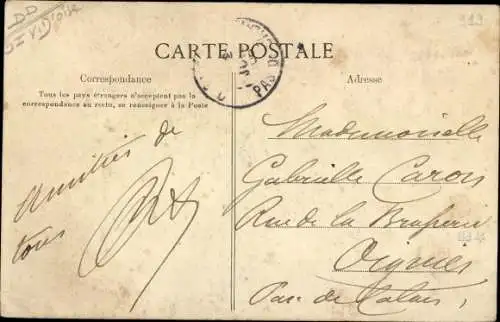 DD
919
CARTE POSTALE
Correspondance
Tous les pays étrangers n'acceptent pas la
correspondance au recto, se renseigner à la Poste
Adresse
PAS D
Amitiés de
tous
Mademoiselle
Gabrielle Caron
Rue de la Braperie
Oignies
Pas de Calais